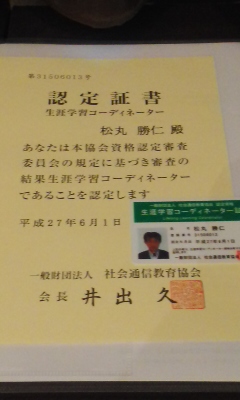 第31506013号
認定証書
生涯学習コーディネーター
松丸 勝仁 殿
あなたは本協会資格認定審査
委員会の規定に基づき審査の
結果生涯学習コーディネーター
であることを認定します
平成27年6月1日
一般財団法人 社会通信教育協会
会長 井出久
生涯学習コーディネーター
松丸 勝仁
平成27年6月1日
一般財団法人 社会通信教育協